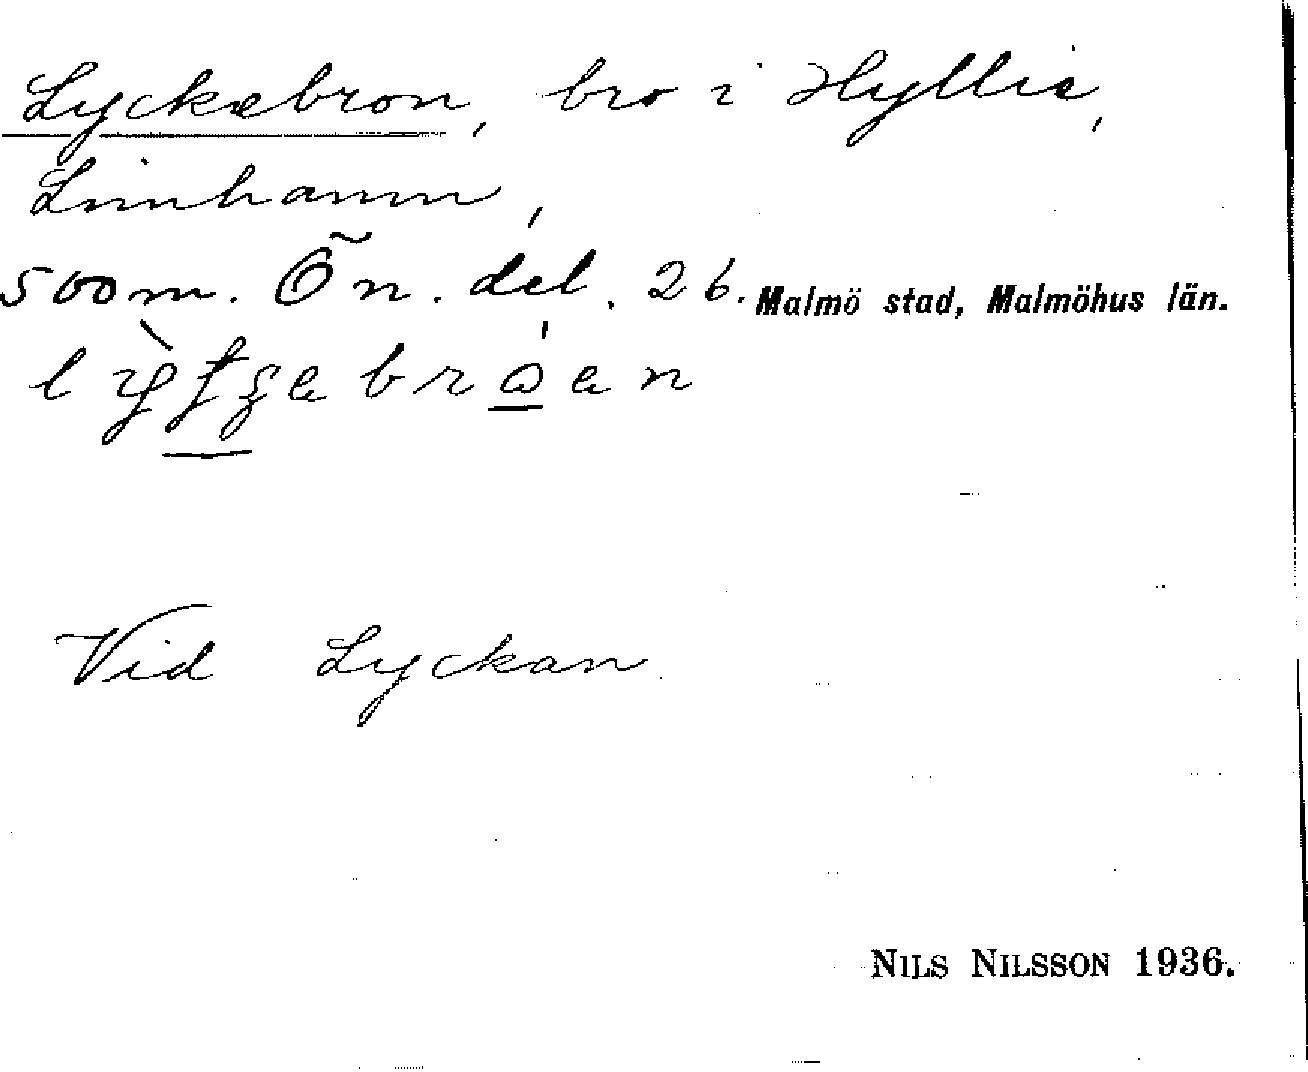 Lyckebron, bro i Hyllie,
Limhamn,
500 m. Ön. del. 26. Malmö stad, Malmöhus län.
Vid Lyckan
NILS NILSSON 1936.